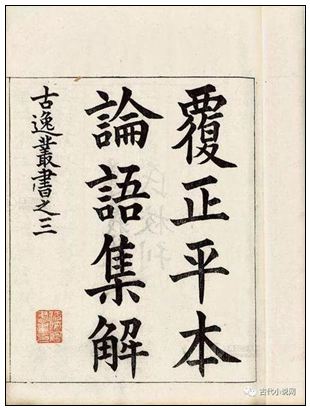 覆正平本
論語集解
古逸叢書之三
古代小说网